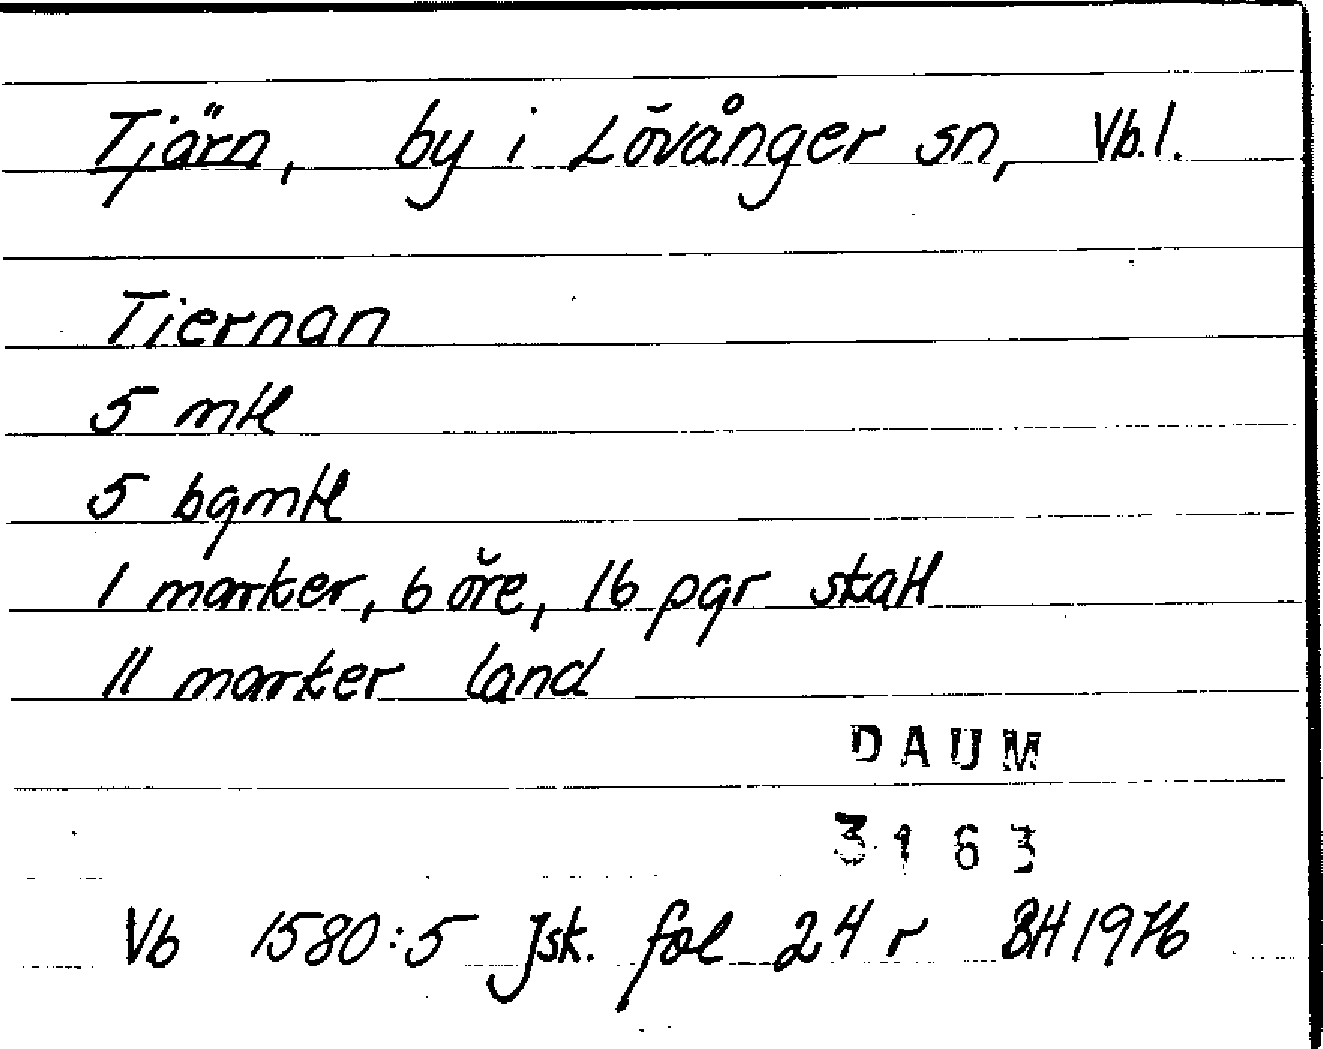 Tjärn, by i Lövånger sn, Vb.l.
Tiernan
5 mtl
5 bgmtl
1 marker, 6 öre, 16 pgr skatt
11 marker land
DAUM
3163
Vb 1580:5 Jsk. fol 24 r BH 1976